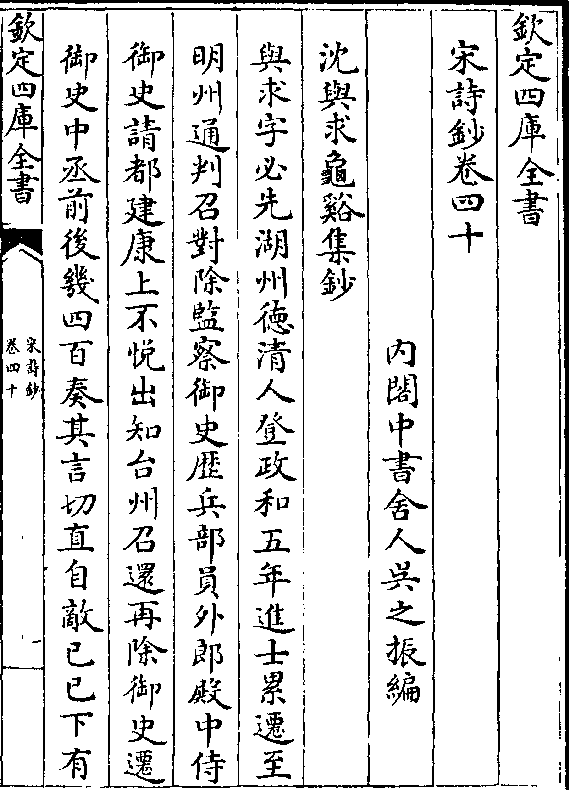 欽定四庫全書
宋詩鈔卷四十
內閣中書舍人吳之振編
沈與求龜谿集鈔
與求字必先湖州德清人登政和五年進士累遷至
明州通判召對除監察御史歴兵部員外郎殿中侍
御史請都建康上不悅出知台州召還再除御史遷
御史中丞前後幾四百奏其言切直自敵已已下有
欽定四庫全書
宋詩鈔
卷四十